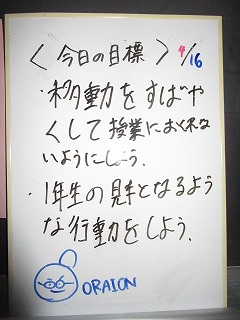 〈今日の目標〉 4/16
・移動をすばや
くして授業におくれな
いようにしよう.
・1年生の見本となるよう
な行動をしよう.
ORAION